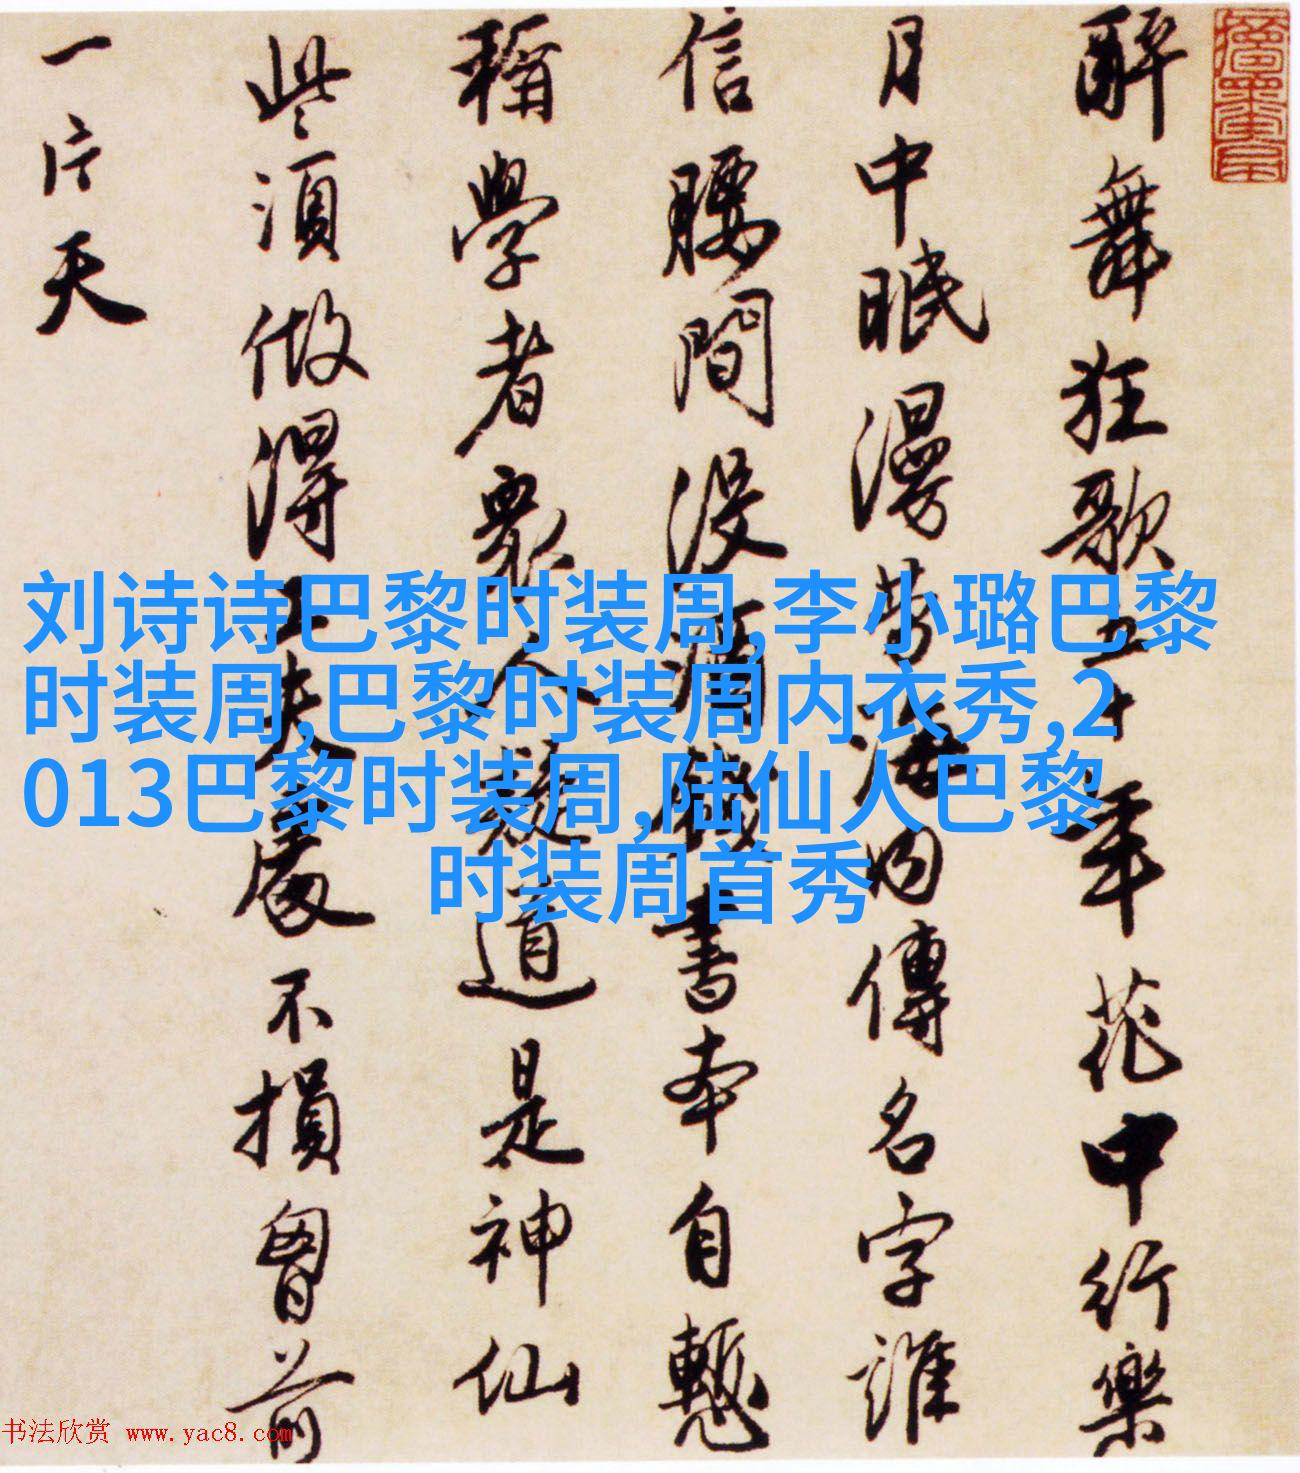 醉舞狂歌五十年花中行樂
月中眠漫勞海內傳名字誰
信腰間沒酒錢書本自慙
稱學者衆人疑道是神仙
些須做得工夫處不損胷前
一片天
刘诗诗巴黎时装周,李小璐巴黎
时装周,巴黎时装周内衣秀,2
013巴黎时装周,陆仙人巴黎
时装周首秀
书法欣赏 www.yac8.com